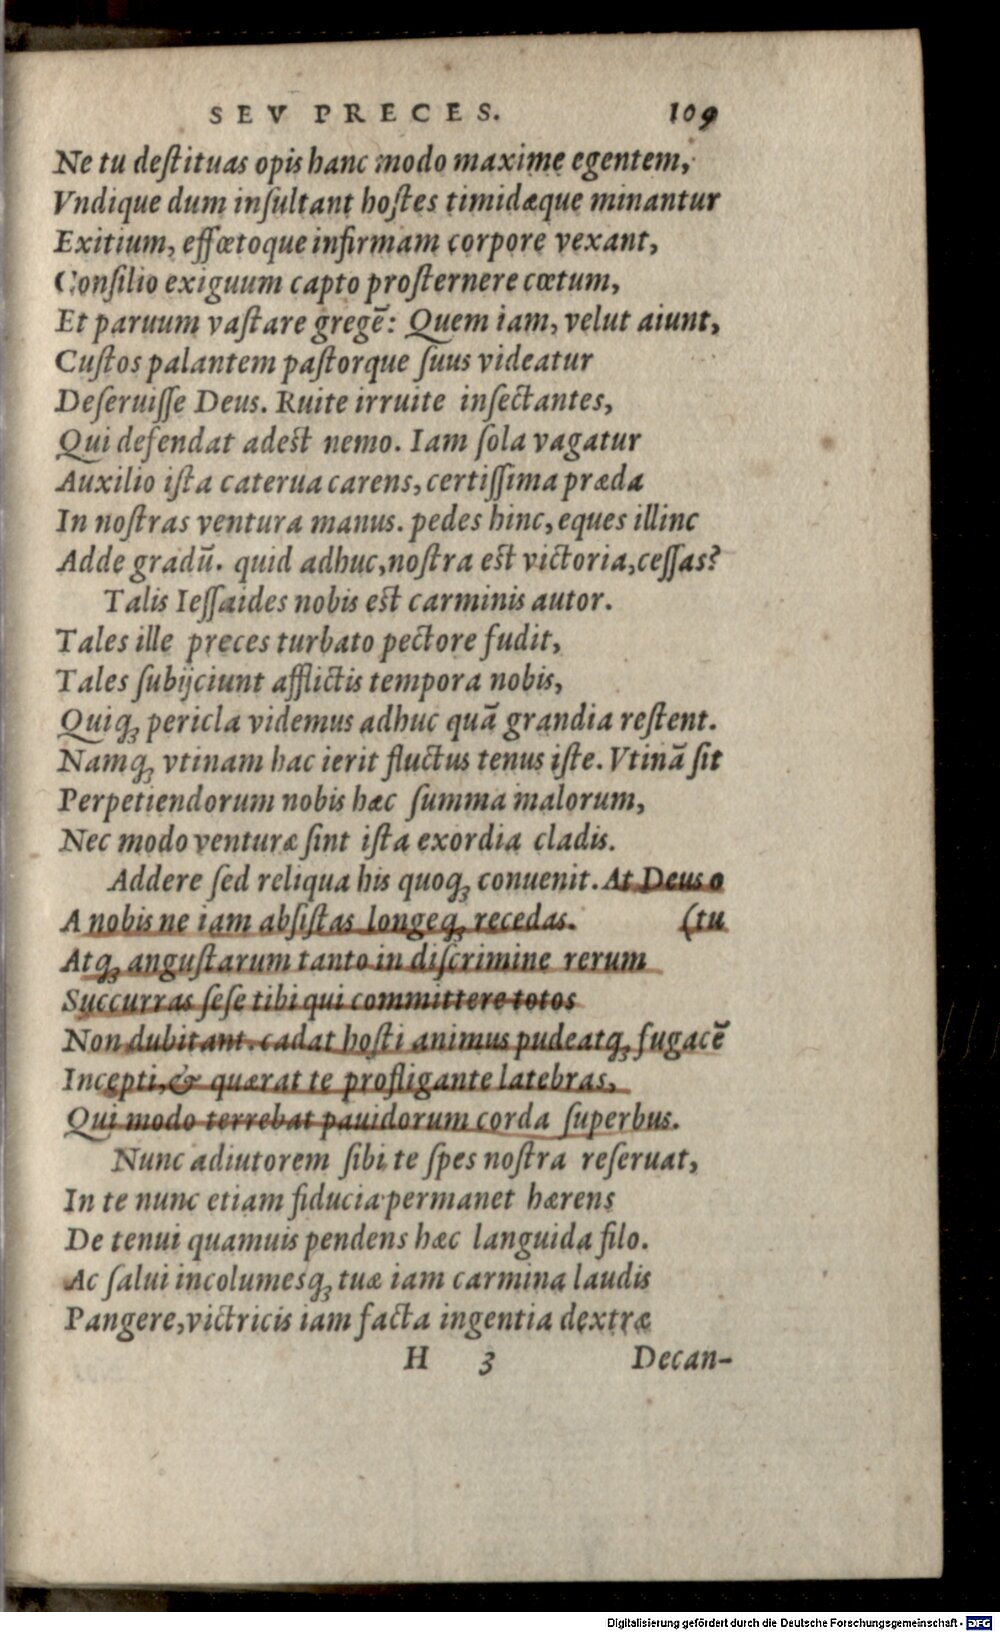 SEV PRECES. 109
Ne tu deſtituas opis hanc modo maxime egentem,
Vndique dum inſultant hoſtes timidæque minantur
Exitium, effœtoque infirmam corpore vexant,
Conſilio exiguum capto proſternere cœtum,
Et paruum vaſtare gregē: Quem iam, velut aiunt,
Cuſtos palantem paſtorque ſuus videatur
Deſeruiſſe Deus. Ruite irruite inſectantes,
Qui defendat adeſt nemo. Iam ſola vagatur
Auxilio iſta caterua carens, certiſſima præda
In noſtras ventura manus. pedes hinc, eques illinc
Adde gradū. quid adhuc, noſtra eſt victoria, ceſſas?
Talis Ieſſaides nobis eſt carminis autor.
Tales ille preces turbato pectore fudit,
Tales ſubijciunt afflictis tempora nobis,
Quiq; pericla videmus adhuc quā grandia reſtent.
Namq; vtinam hac ierit fluctus tenus iſte. Vtinā ſit
Perpetiendorum nobis hæc ſumma malorum,
Nec modo venturæ ſint iſta exordia cladis.
Addere ſed reliqua his quoq; conuenit. At Deus o
A nobis ne iam abſiſtas longeq; recedas. (tu
Atq; anguſtarum tanto in diſcrimine rerum
Succurras ſeſe tibi qui committere totos
Non dubitant. cadat hoſti animus pudeatq; fugacē
Incepti, & quærat te profligante latebras,
Qui modo terrebat pauidorum corda ſuperbus.
Nunc adiutorem ſibi te ſpes noſtra reſeruat,
In te nunc etiam fiducia permanet hærens
De tenui quamuis pendens hæc languida filo.
Ac ſalui incolumesq; tuæ iam carmina laudis
Pangere, victricis iam facta ingentia dextræ
H 3 Decan-
Digitalisierung gefördert durch die Deutsche Forschungsgemeinschaft - DFG